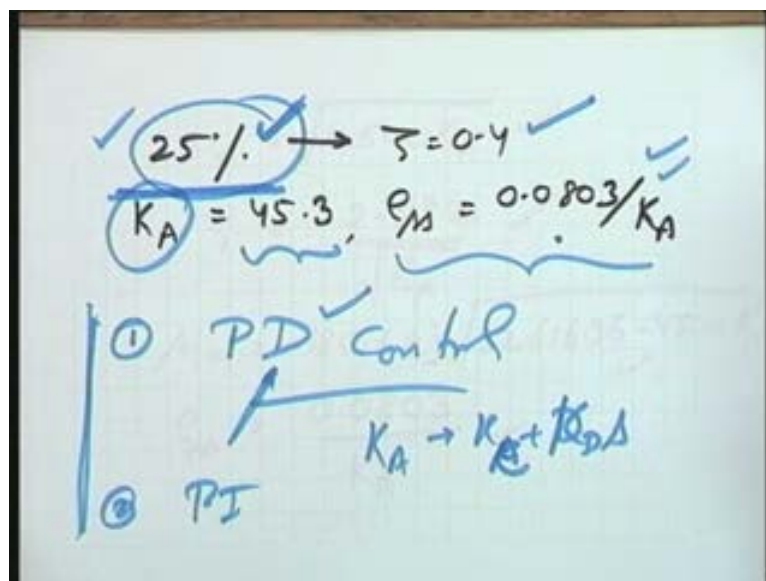 25% → ζ = 0.4
K_A = 45.3, e_ss = 0.0803/K_A
① PD Control
K_A → K_C + K_D s
② PI